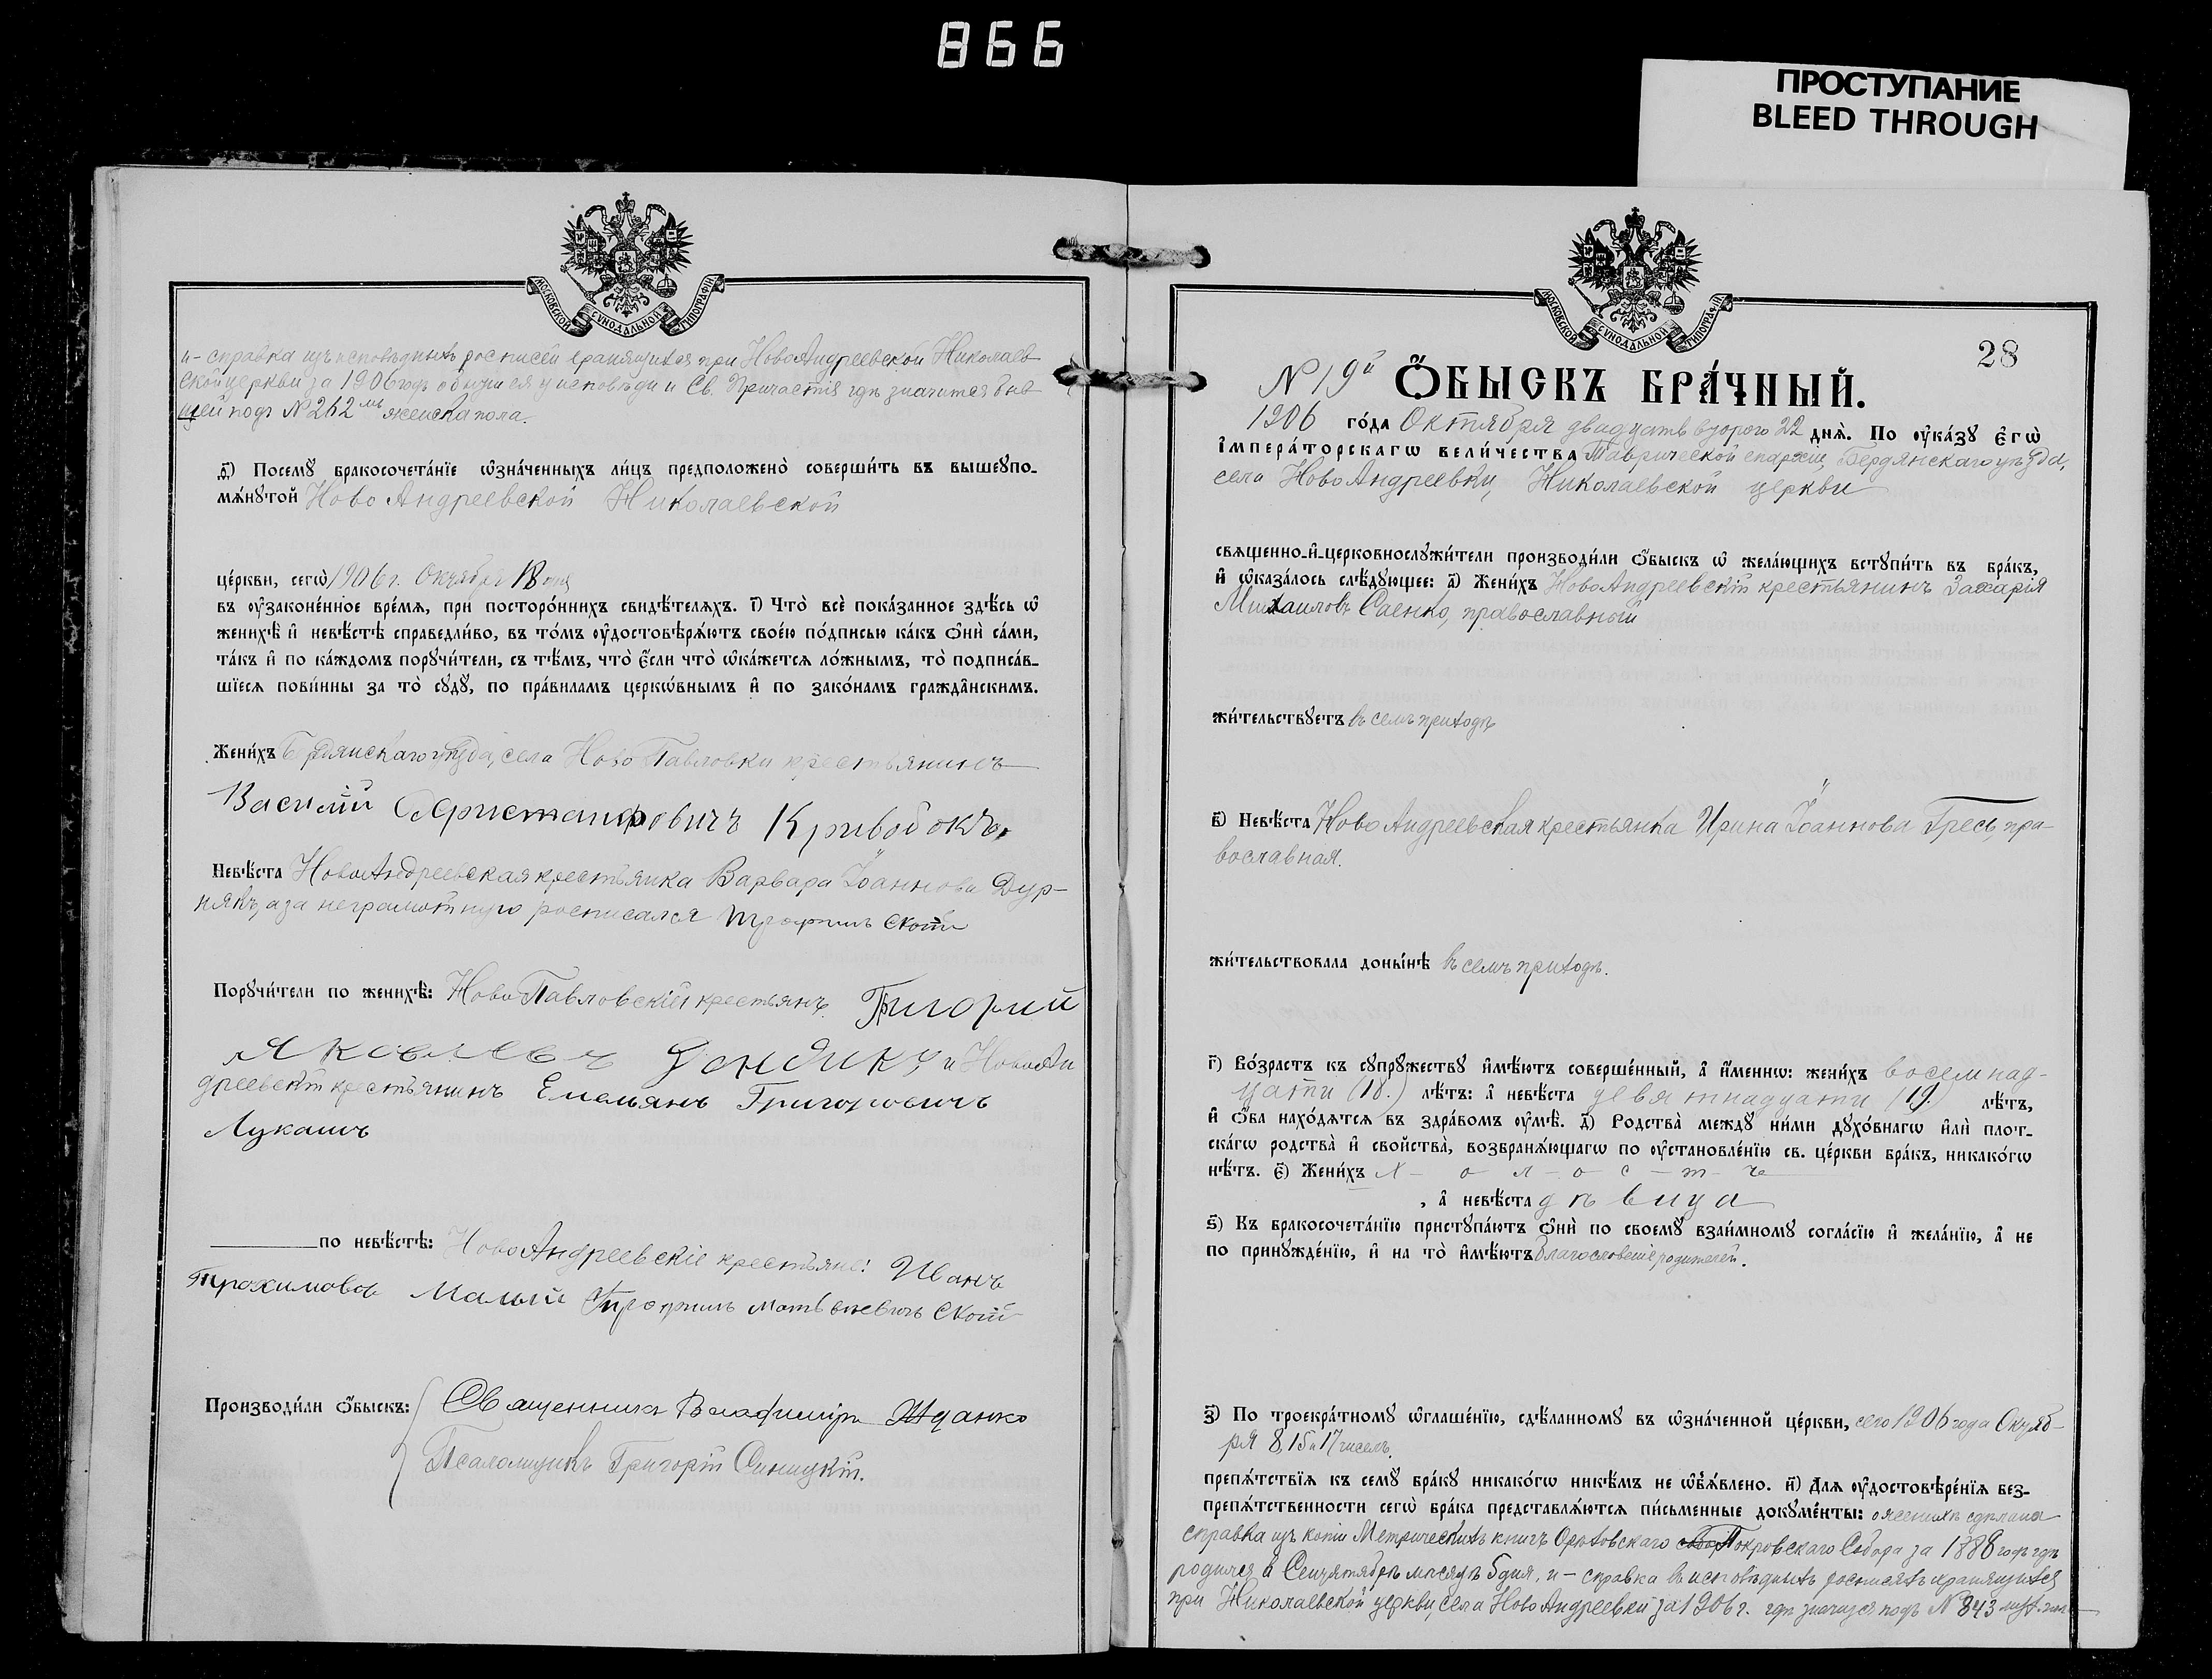 866
ПРОСТУПАНИЕ
BLEED THROUGH
МОСКОВСКОЙ СѴНОДАЛЬНОЙ ТИПОГРАФІИ
и - справка изъ исповѣдныхъ росписей хранящихся при Ново Андреевской Николаев-
ской церкви за 1906 годъ о бывшей у исповѣди и Св. Причастія гдѣ значится быв-
шей подъ № 262мъ женска пола.
д҃) Посемꙋ бракосочета́нїе ѡ҆зна́ченныхъ ли́цъ предположено̀ соверши́ть въ вышеꙋпо-
мѧ́нꙋтой Ново Андреевской Николаевской
це́ркви, сегѡ̀ 1906 г. Октября 18 дня
въ ᲂу҆законе́нное вре́мѧ, при посторо́ннихъ свидѣ́телѧхъ. і҃) Что̀ всѐ пока́занное здѣ́сь ѡ҆
женихѣ̀ и҆ невѣ́стѣ справедли́во, въ то́мъ ᲂу҆достовѣрѧ́ютъ свое́ю по́дписью ка́къ ѻ҆нѝ са́ми,
та́къ и҆ по ка́ждомъ порꙋчи́тели, съ тѣ́мъ, что̀ є҆́сли что̀ ѡ҆ка́жетсѧ ло́жнымъ, то̀ подписа́в-
шїесѧ пови́нны за то̀ сꙋдꙋ̀, по пра́виламъ церко́внымъ и҆ по зако́намъ гражда̂нскимъ.
Жени́хъ Бердянскаго уѣзда, села Ново Павловки крестьянинъ
Василий Христанфовичъ Кривобокъ.
Невѣ́ста НовоАндреевская крестьянка Варвара Іоаннова Дур-
някъ, а за неграмотную росписался Трофимъ Скот
Порꙋчи́тели по женихѣ̀: Ново Павловскій крестьян. Григорий
Яковлевъ и НовоАн
дреевскій крестьянинъ Емельянъ Григоровичъ
Лукашъ
по невѣ́стѣ: НовоАндреевскіе крестьяне: Иванъ
Трохимовов Малый Трофимъ Матвѣевичъ Скот
Производи́ли ѻ҆́быскъ: Священникъ Владимиръ Жданко
Псаломщикъ Григорій Синицкій.
МОСКОВСКОЙ СѴНОДАЛЬНОЙ ТИПОГРАФІИ
28
№ 19й ѺБЫСКЪ БРА́ЧНЫЙ.
1906 го́да Октября двадцать второго 22 днѧ̀. По ᲂу҆ка́зꙋ є҆гѡ̀
і҆мпера́торскагѡ вели́чества Таврической епархіи, Бердянскаго уѣзда,
села НовоАндреевки, Николаевской церкви
свѧщенно-и҆-церковнослꙋжи́тели производи́ли ѻ҆́быскъ ѡ҆ жела́ющихъ встꙋпи́ть въ бра́къ,
и҆ ѡ҆каза́лось слѣ́дꙋющее: а҃) Жени́хъ НовоАндреевскій крестьянинъ Захарія
Михаиловъ Саенко, православный
жи́тельствꙋетъ въ семъ приходѣ
в҃) Невѣ́ста Ново Андреевская крестьянка Ирина Іоаннова Гресь, пра-
вославная.
жи́тельствовала донынѣ въ семъ приходѣ.
г҃) Во́зрастъ къ сꙋпрꙋ́жествꙋ и҆мѣ́ютъ соверше́нный, а҆ и҆́менно: жени́хъ восемнад-
цати (18.) лѣ́тъ: а҆ невѣ́ста девятнадцати (19) лѣ́тъ,
и҆ ѻ҆́ба нахо́дѧтсѧ въ здра́вомъ ᲂу҆мѣ̀. д҃) Родства̀ междꙋ ни́ми дꙋхо́внагѡ и҆лѝ плот-
ска́гѡ родства̀ и҆ сво́йства̀, возбранѧ́ющагѡ по ᲂу҆становле́нїю св. це́ркви бра́къ, никако́гѡ
нѣ́тъ. є҃) Жени́хъ х - о - л - о - с - т - ъ
, а҆ невѣ́ста дѣвица
ѕ҃) Къ бракосочета́нїю пристꙋпа́ютъ ѻ҆нѝ по своемꙋ̀ взаи́мномꙋ согла́сїю и҆ жела́нїю, а҆ не
по принꙋжде́нїю, и҆ на то̀ и҆мѣ́ютъ благословеніе родителей.
з҃) По троекра́тномꙋ ѡ҆глаше́нїю, сдѣ́ланномꙋ въ ѡ҆зна́ченной це́ркви, сего 1906 года Октяб-
ря 8, 15 и 17 чиселъ
препѧ́тствїѧ къ семꙋ̀ бра́кꙋ никако́гѡ никѣ́мъ не ѡ҆б̾ѧ́влено. и҃) Длѧ ᲂу҆достовѣре́нїѧ без-
препѧ́тственности сегѡ̀ бра́ка представлѧ́ютсѧ пи́сьменные докꙋме́нты: о женихѣ сдѣлана
справка изъ копіи Метрическихъ книгъ Орѣховскаго Покровскаго Собора за 1888 годъ гдѣ
родился въ Сентябрѣ мѣсяцѣ 5 дня, и - справка въ исповѣдныхъ росписяхъ хранящихся
при Николаевской церкви, села НовоАндреевки за 1906 г. гдѣ значится подъ № 843 муж. пол